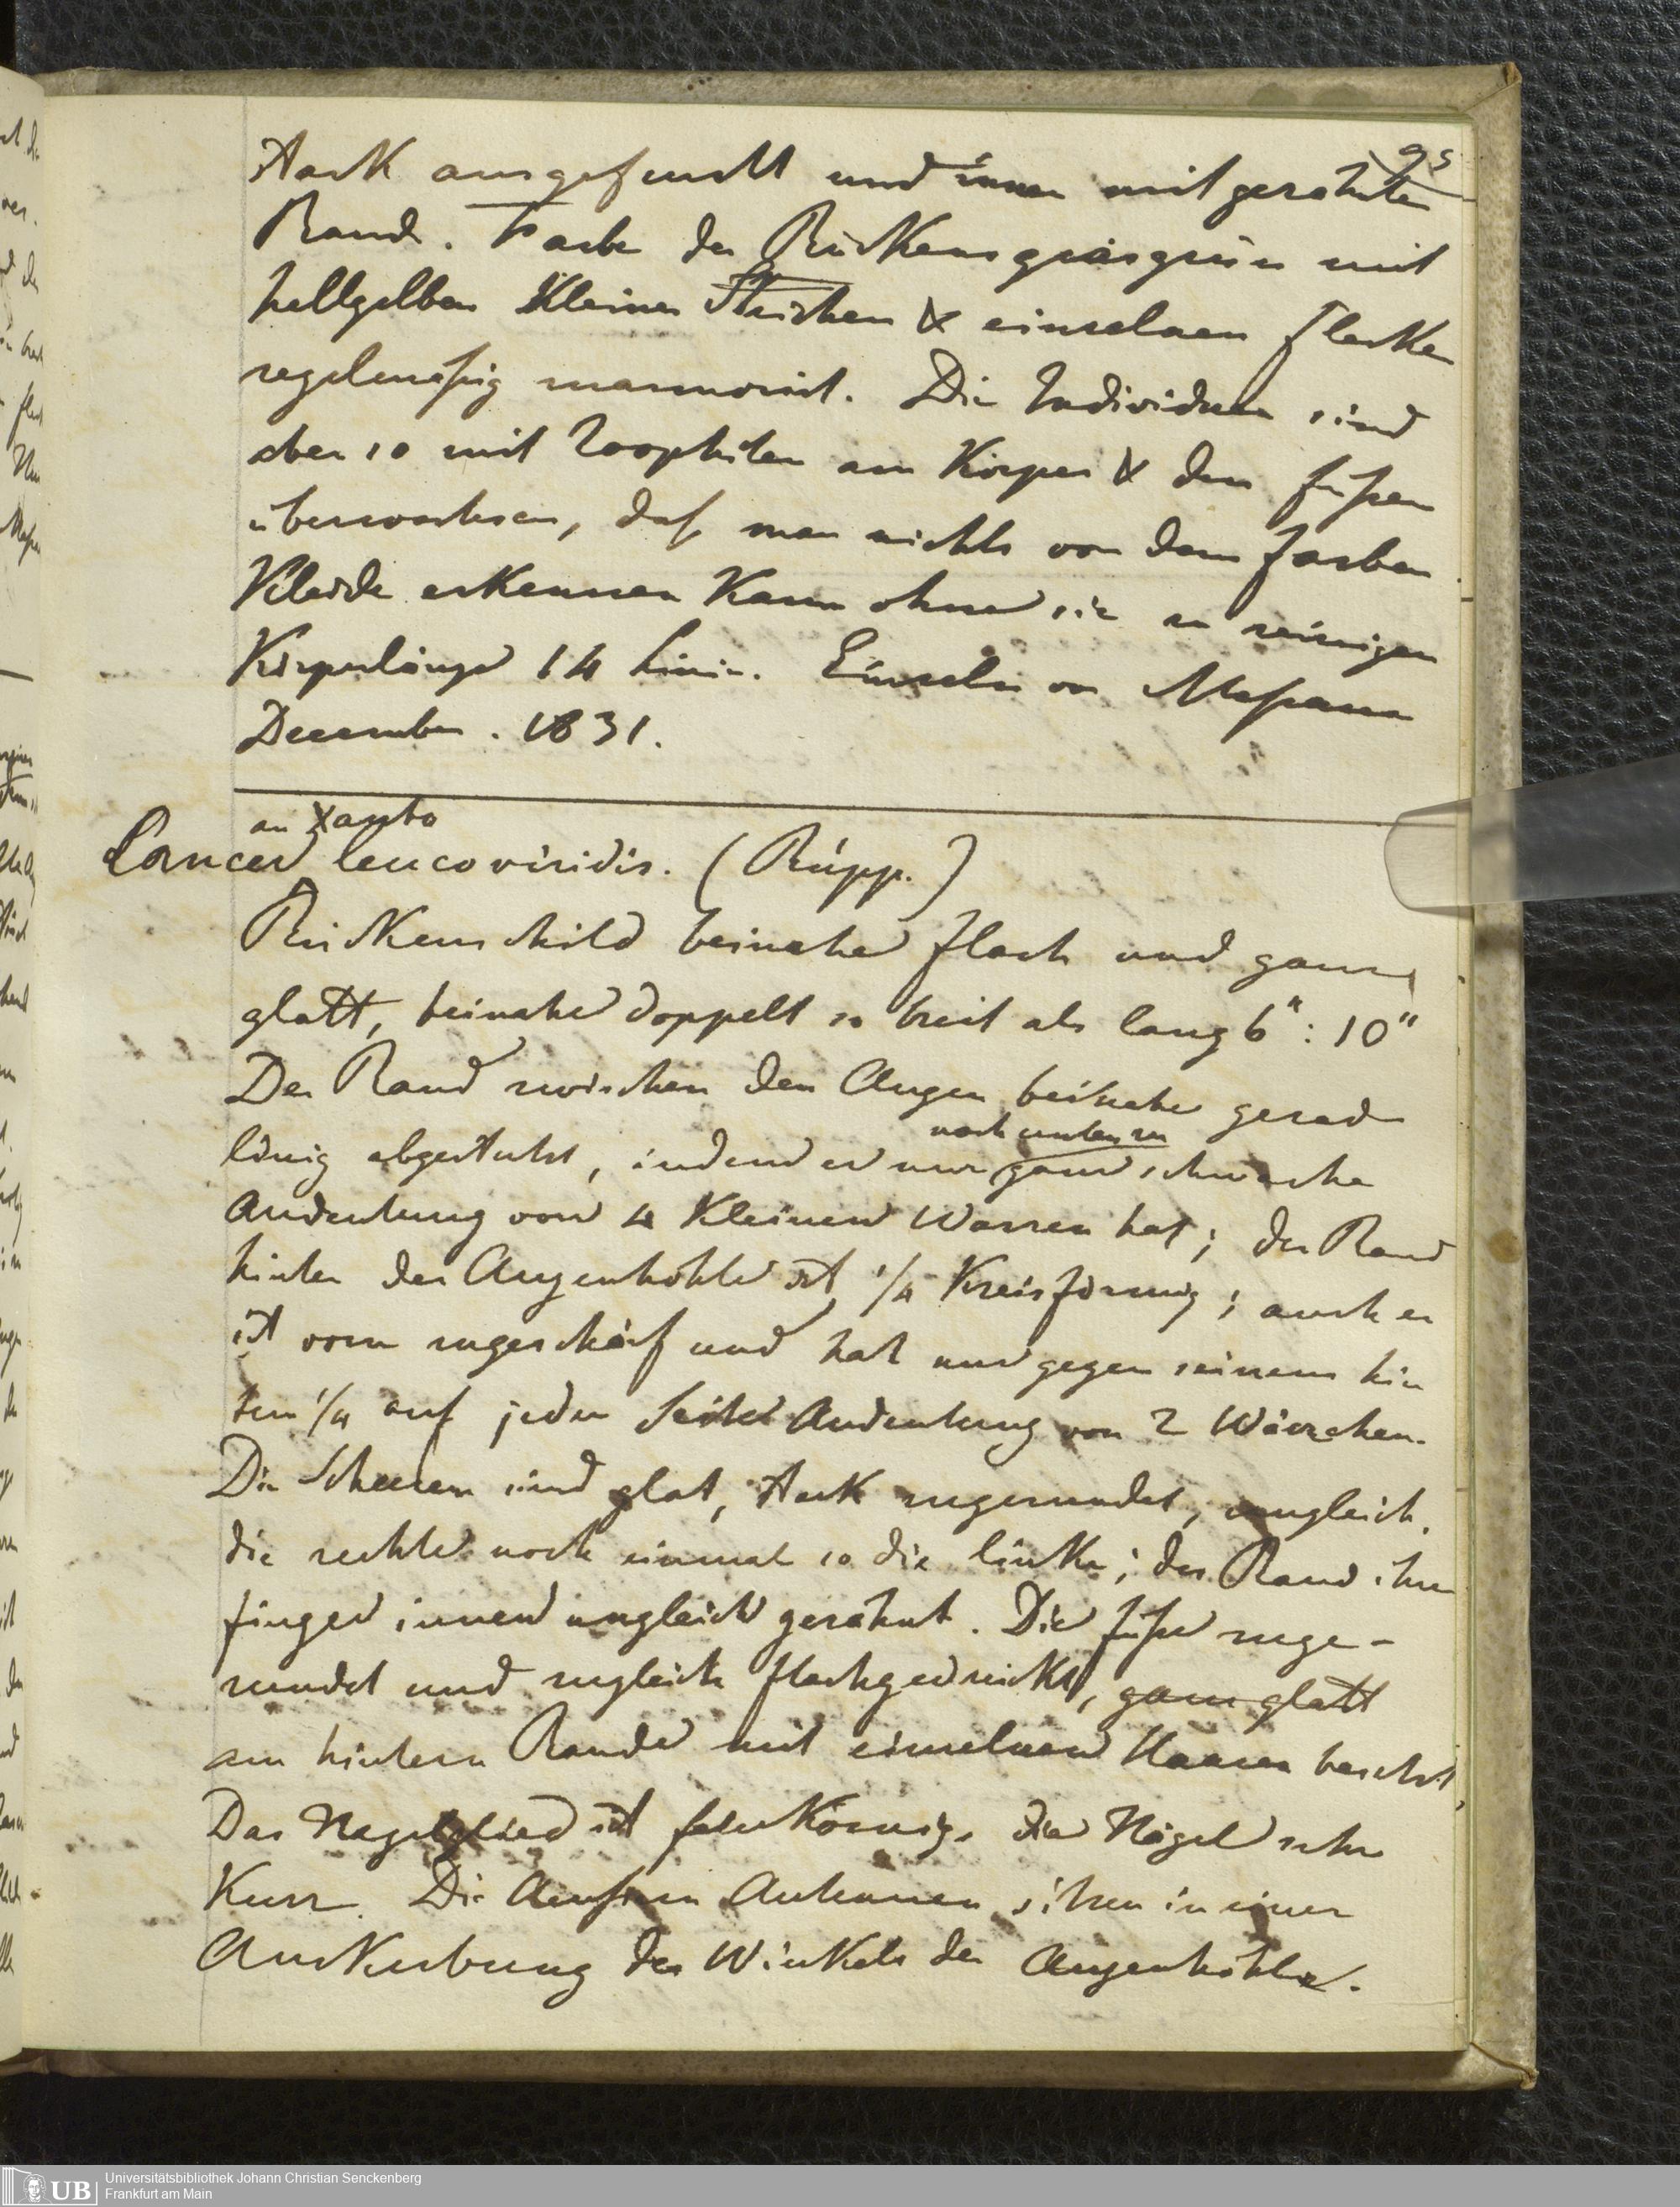 95
stark ausgefurcht und innen mit gezähnten
Rand. Farbe des Rückens grasgrün mit
hellgelben kleinen Strichen & einzelnen Flecken
regelmäßig marmorirt. Die Individuen sind
aber so mit Zoophiten am Körper & den Füßen
überwachsen, daß man nichts von dem Farben
Kleide erkennen kann ohne sie zu reinigen
Körperlänge 14 Linien. Einzeln von Massaua
December. 1831.
an Xanto
Cancer leucoviridis. (Rüpp.)
Rückenschild beinahe flach und ganz
glatt, beinahe doppelt so breit als lang 6" : 10"
Der Rand zwischen den Augen beinahe gerad
nach unten zu
linig abgestutzt, indem er nur ganz schwache
Andeutung von 4 kleinen Warzen hat; der Rand
hinter der Augenhöhle ist 1/4 Kreisförmig; auch er
ist vorn zugeschärf und hat nur gegen seinem hin
tern 1/4 auf jeder Seite Andeutung von 2 Wärzchen.
Die Scheeren sind glat, stark zugerundet, ungleich,
die rechte noch einmal so die linke; der Rand ihrer
Finger innen ungleich gezähnt. Die Füße zuge-
rundet und zugleich flachgedrückt, ganz glatt
am hintern Rande mit einzelnen Haaren besetzt,
Das Nagelglied ist feinkörnig, die Nägel sehr
Kurz. Die Aeußern Antennen sitzen in einer
Auskerbung des Winkels der Augenhöhle.
Universitätsbibliothek Johann Christian Senckenberg
UB
Frankfurt am Main